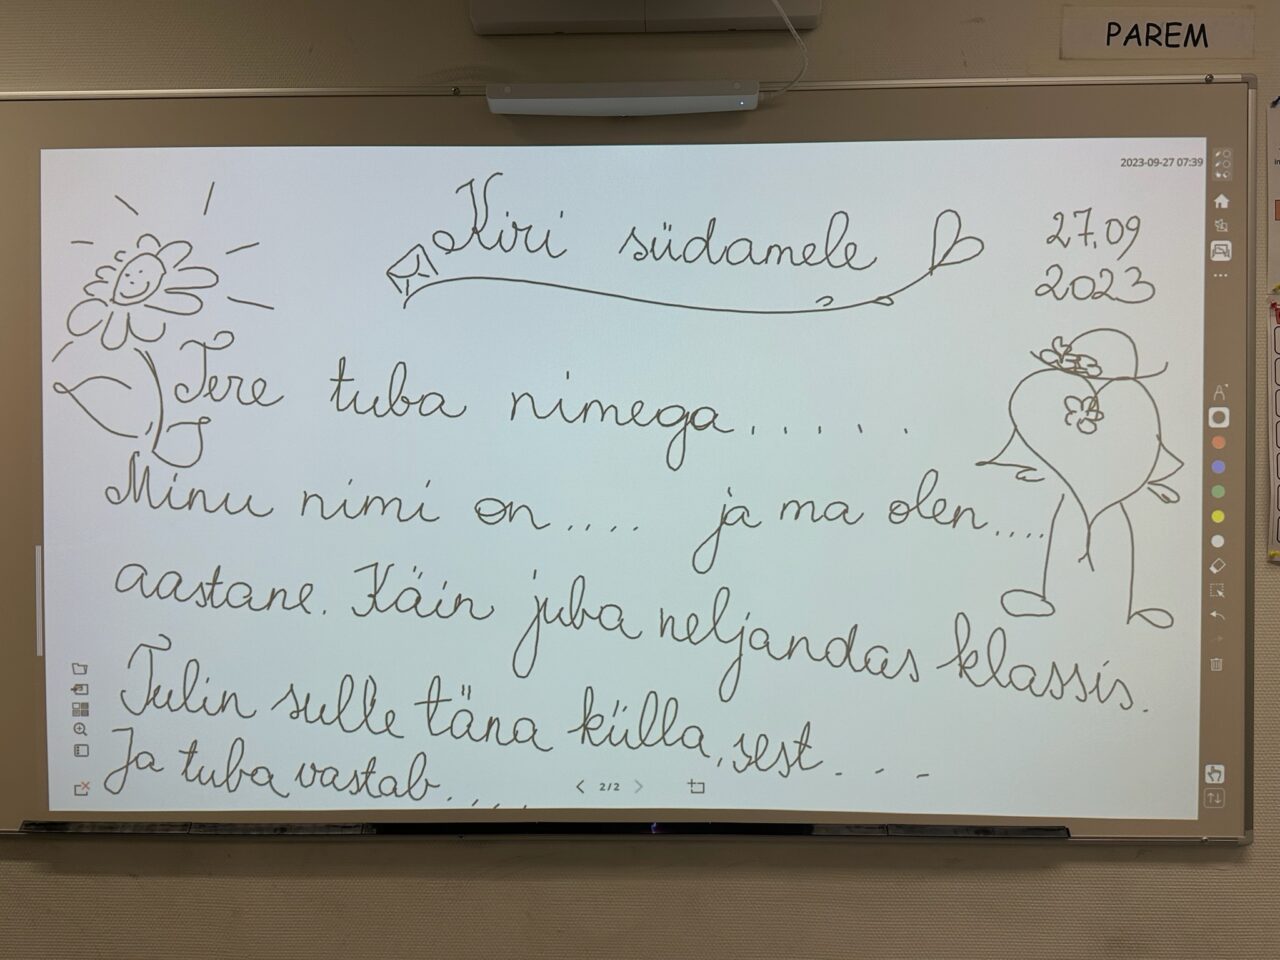 PAREM
2023-09-27 07:39
Kiri südamele
27.09
2023
Tere tuba nimega.....
Minu nimi on.... ja ma olen....
aastane. Käin juba neljandas klassis.
Tulin sulle täna külla, sest....
Ja tuba vastab....
2/2